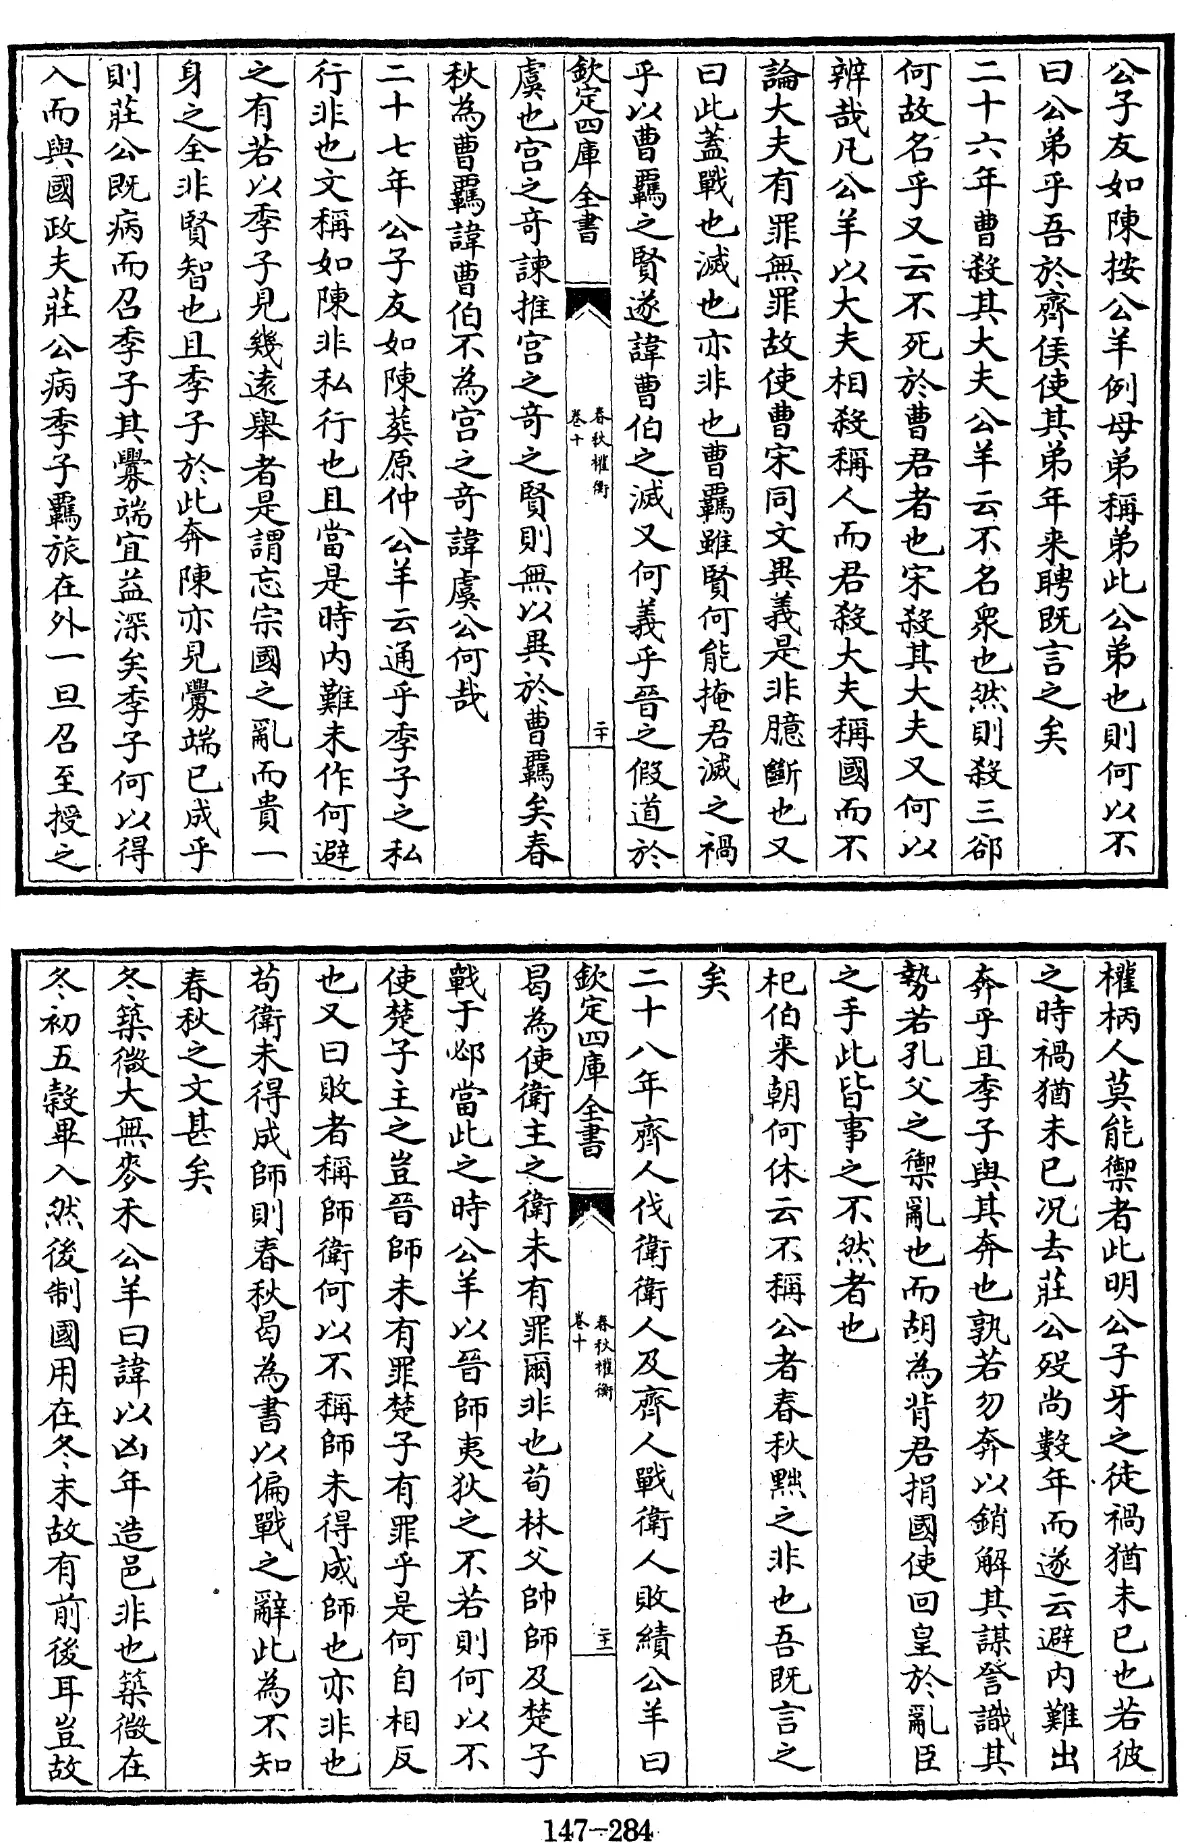 公子友如陳按公羊例母弟稱弟此公弟也則何以不
曰公弟乎吾於齊侯使其弟年来聘既言之矣
二十六年曹殺其大夫公羊云不名衆也然則殺三郤
何故名乎又云不死於曹君者也宋殺其大夫又何以
辨哉凡公羊以大夫相殺稱人而君殺大夫稱國而不
論大夫有罪無罪故使曹宋同文異義是非臆斷也又
曰此蓋戰也滅也亦非也曹羈雖賢何能掩君滅之禍
乎以曹羈之賢遂諱曹伯之滅又何義乎晉之假道於
欽定四庫全書
春秋權衡
卷十
二十
虞也宫之奇諫推宫之奇之賢則無以異於曹羈矣春
秋為曹羈諱曹伯不為宫之奇諱虞公何哉
二十七年公子友如陳葬原仲公羊云通乎季子之私
行非也文稱如陳非私行也且當是時内難未作何避
之有若以季子見幾逺舉者是謂忘宗國之亂而貴一
身之全非賢智也且季子於此奔陳亦見釁端已成乎
則莊公既病而召季子其釁端宜益深矣季子何以得
入而與國政夫莊公病季子羈旅在外一旦召至授之
權柄人莫能禦者此明公子牙之徒禍猶未已也若彼
之時禍猶未已况去莊公殁尚數年而遂云避内難出
奔乎且季子與其奔也孰若勿奔以銷解其謀詧識其
勢若孔父之禦亂也而胡為背君捐國使回皇於亂臣
之手此皆事之不然者也
杞伯来朝何休云不稱公者春秋黜之非也吾既言之
矣
二十八年齊人伐衛衛人及齊人戰衛人敗績公羊曰
欽定四庫全書
春秋權衡
卷十
二十一
曷為使衛主之衛未有罪爾非也荀林父帥師及楚子
戰于邲當此之時公羊以晉師夷狄之不若則何以不
使楚子主之豈晉師未有罪楚子有罪乎是何自相反
也又曰敗者稱師衛何以不稱師未得成師也亦非也
茍衛未得成師則春秋曷為書以偏戰之辭此為不知
春秋之文甚矣
冬築微大無麥禾公羊曰諱以凶年造邑非也築微在
冬初五穀畢入然後制國用在冬末故有前後耳豈故
147-284